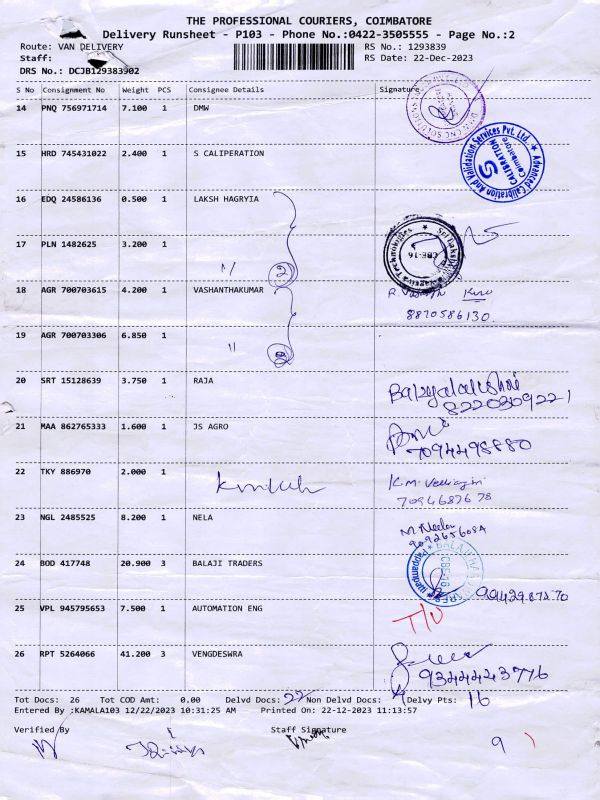 THE PROFESSIONAL COURIERS, COIMBATORE
Delivery Runsheet - P103 - Phone No.:0422-3505555 - Page No.:2
Route: VAN DELIVERY RS No.: 1293839
Staff: RS Date: 22-Dec-2023
DRS No.: DCJB129383902
S No Consignment No Weight PCS Consignee Details Signature
14 PNQ 756971714 7.100 1 DMW
15 HRD 745431022 2.400 1 S CALIPERATION
Advanced Calibration And Validation Services Pvt. Ltd.
CALIBRATION
Coimbatore
16 EDQ 24586136 0.500 1 LAKSH HAGRYIA
17 PLN 1482625 3.200 1
11 2
Technologies
CBE-16
18 AGR 700703615 4.200 1 VASHANTHAKUMAR
8870586130
19 AGR 700703306 6.850 1
11 2
20 SRT 15128639 3.750 1 RAJA
8220309221
21 MAA 862765333 1.600 1 JS AGRO
7094498880
22 TKY 886970 2.000 1 K.M.
7094687678
23 NGL 2485525 8.200 1 NELA
9092656084
24 BOD 417748 20.900 3 BALAJI TRADERS
99429.87570
25 VPL 945795653 7.500 1 AUTOMATION ENG
26 RPT 5264066 41.200 3 VENGDESWRA
9344443776
Tot Docs: 26 Tot COD Amt: 0.00 Delvd Docs: 22 Non Delvd Docs: 4 Delvy Pts: 16
Entered By ;KAMALA103 12/22/2023 10:31:25 AM Printed On: 22-12-2023 11:13:57
Verified By Staff Signature
9